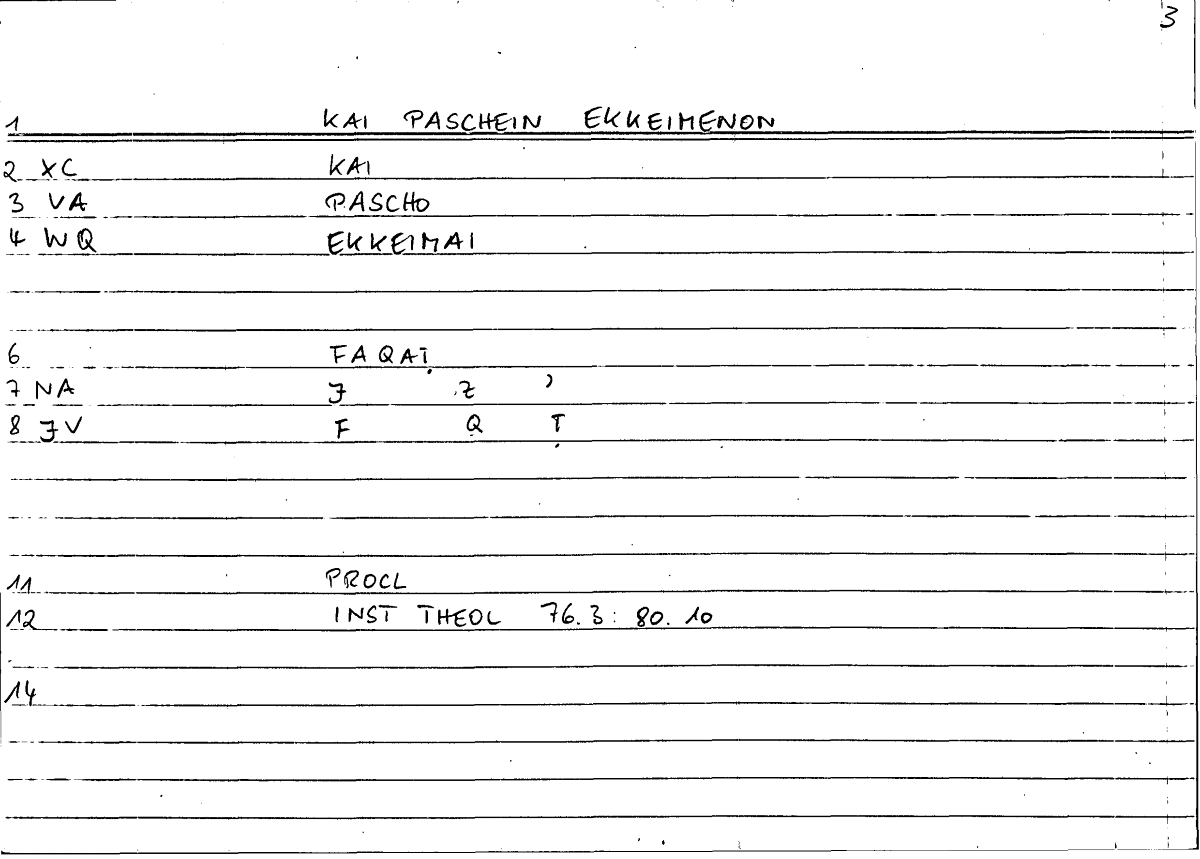 3
1 KAI PASCHEIN EKKEIMENON
2 XC KAI
3 VA PASCHO
4 WQ EKKEIMAI
6 FAQAṬ
7 NA Ɉ Z ʾ
8 ɈV F Q Ṭ
11 PROCL
12 INST THEOL 76.3: 80.10
14